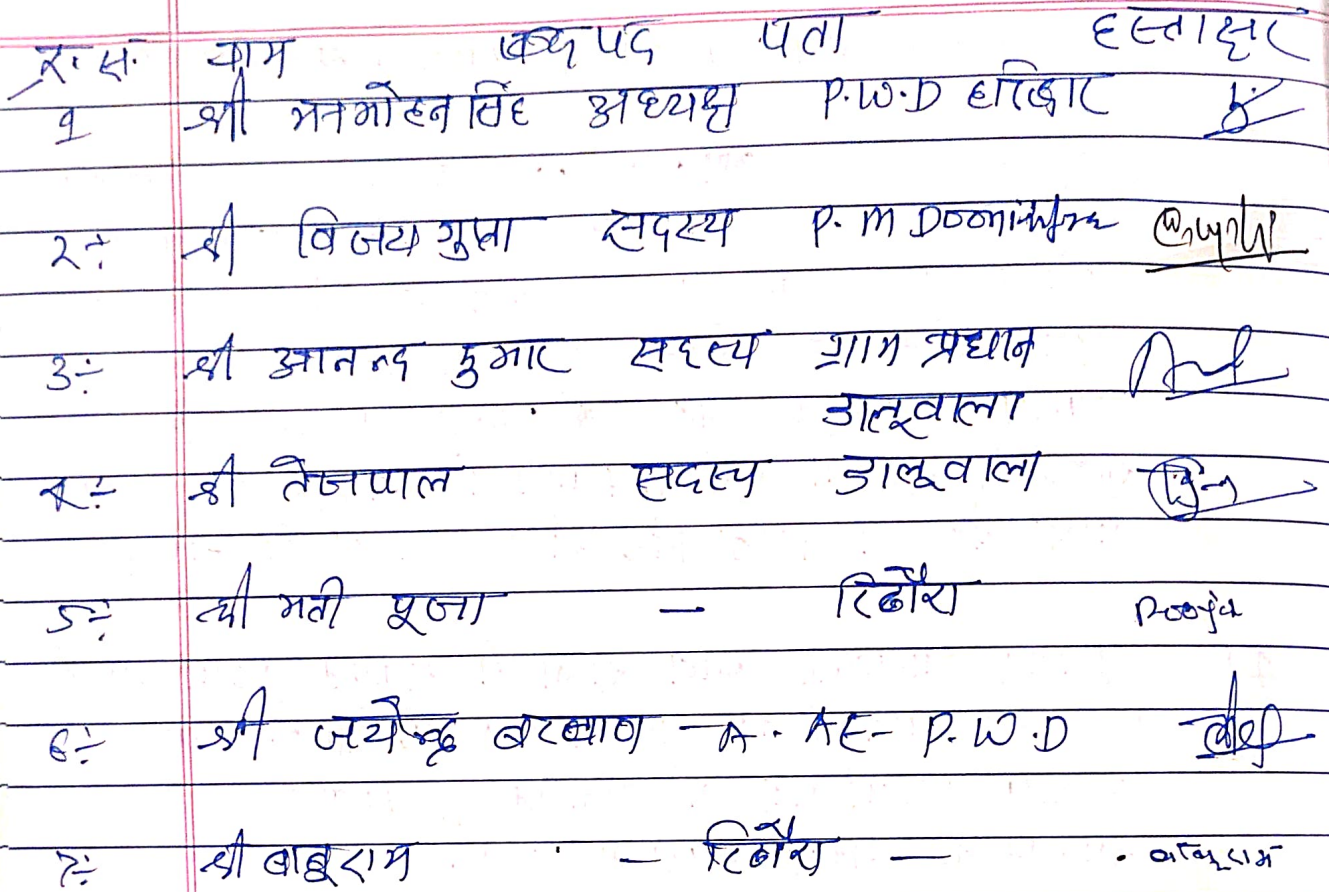 क्र. सं. नाम पद पता हस्ताक्षर
१ श्री मनमोहन सिंह अध्यक्ष P.W.D हरिद्वार
२÷ श्री विजय गुप्ता सदस्य P. M
3÷ श्री आनन्द कुमार सदस्य ग्राम प्रधान
डालूवाला
४÷ श्री तेजपाल सदस्य डालूवाला
5÷ श्री मती पूजा — Pooja
6÷ श्री जयेन्द्र - A. AE- P.W.D
7÷ श्री बाबूराम — — बाबूराम